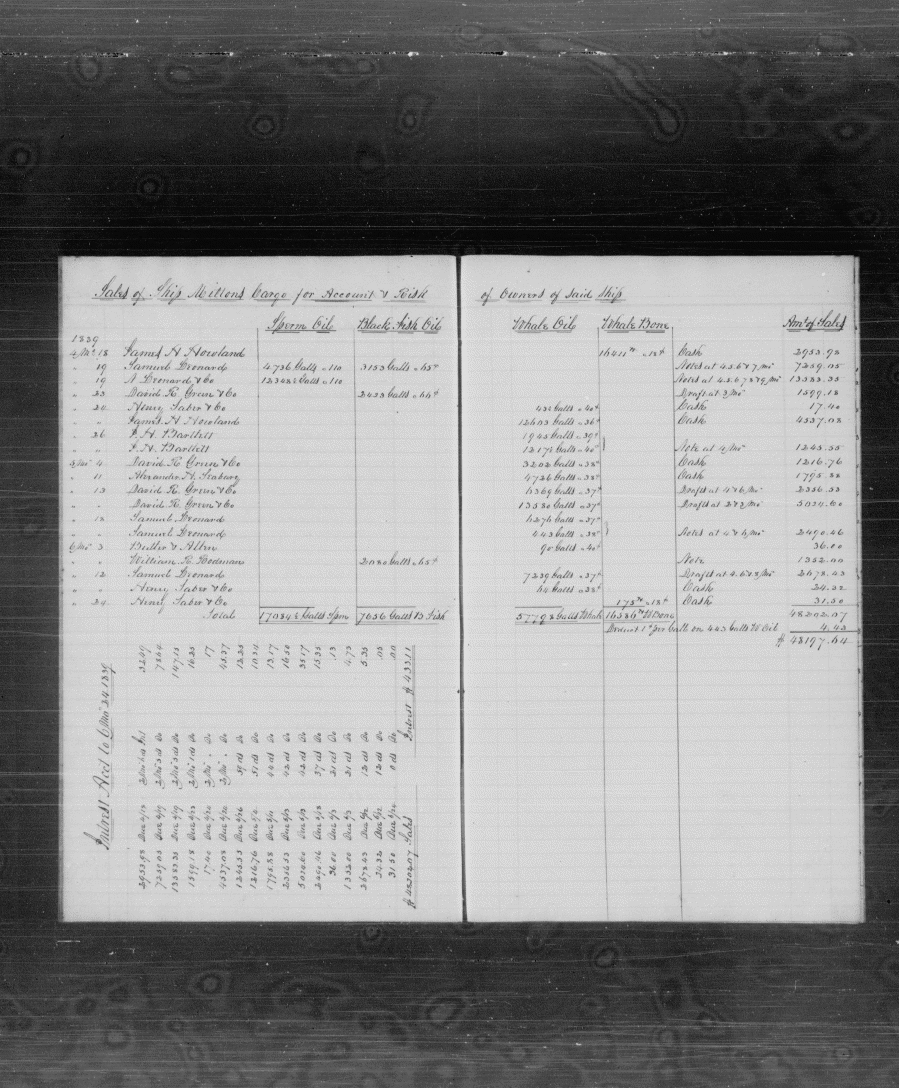 Sales of Ship Miltons Cargo for Account & Risk of Owners of said Ship
Sperm Oil Black Fish Oil Whale Oil Whale Bone Amt of Sales
1839
4 Mo. 18 James H Howland 16411 lb @ 18¢ Cash 2953.98
" 19 Samuel Leonard 4736 Galls @ 110 3153 Galls @ 65¢ Notes at 4.5.6 & 7/Mo 7259.05
" 19 S Leonard & Co 12348½ Galls @ 110 Notes at 4.5.6.7.8 & 9/Mo 13583.35
" 23 David R. Green & Co 2423 Galls @ 66¢ Draft at 3/Mo 1599.18
" 24 Henry Taber & Co Galls @ 40¢ Cash 17.40
" " James H. Howland 12603 Galls @ 36¢ Cash 4537.08
" 26 J. H. Bartlett 1945 Galls @ 39¢
" " J. H. Bartlett Galls @ 40¢ Note at /Mo
5 Mo 4 David R. Green & Co 3202 Galls @ 38¢ Cash 1216.76
" 11 Alexander H. Seabury 4726 Galls @ 38¢ Cash 1795.88
" 13 David R. Green & Co 6369 Galls @ 37¢ Draft at 4 & 6/Mo 2356.53
" " David R. Green & Co 13580 Galls @ 37¢ Draft at 2 & 3/Mo
" 18 Samuel Leonard 6276 Galls @ 37¢
" " Samuel Leonard 443 Galls @ 38¢ Notes at 4 & 6/Mo 2490.46
6 Mo 3 Butler & Allen 90 Galls @ 40¢ 36.00
" " William R. Rodman 2080 Galls @ 65¢ Note 1352.00
" 12 Samuel Leonard 7239 Galls @ 37¢ Draft at 4.6 & 8/Mo 2678.43
" " Henry Taber & Co 64 Galls @ 38¢ Cash 24.32
" 24 Henry Taber & Co 175 lb @ 18¢ Cash 31.50
Total 17084½ Galls Spm 7656 Galls B Fish 57798 Galls Whale 16586 lb W Bone 48202.07
Deduct 1¢ per Gall on 443 Galls W Oil 4.43
$ 48197.64
Interest Acct to 6 Mo 24 1839
2953.98 Due 4/18 Int 32.49
7259.05 Due 4/19 Do 78.64
13583.35 Due 4/19 Do 147.15
1599.18 Due 4/23 Do
17.40 Due 4/24 2 Mo " Do .17
4537.08 Due 4/24 2 Mo " Do 45.37
Due 4/26 Do
1216.76 Due 5/4 51 ds Do 10.34
1795.88 Due 5/11 44 ds Do 13.17
2356.53 Due 5/13 42 ds Do 16.50
Due 5/13 42 ds Do 35.17
2490.46 Due 5/18 37 ds Do 15.35
36.00 Due 6/3 21 ds Do .13
1352.00 Due 6/3 21 ds Do 4.73
2678.43 Due 6/12 12 ds Do 5.35
24.32 Due 6/12 12 ds Do .05
31.50 Due 6/24 0 ds Do .00
$ 48202.07 Sales Interest $ 433.11